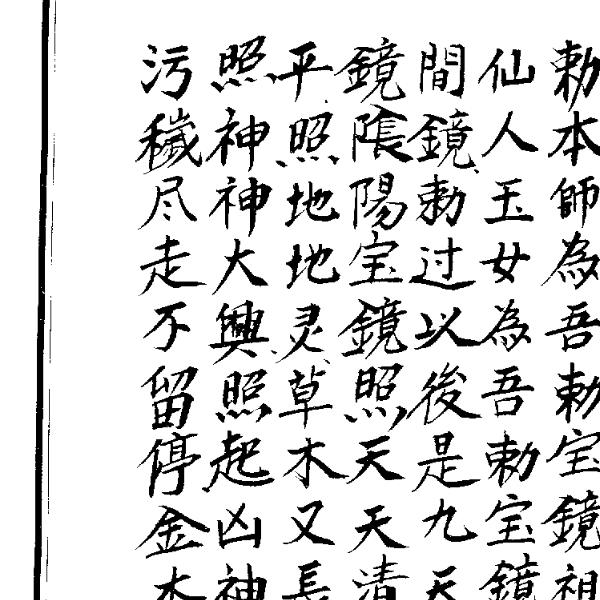 勅本師為吾勅宝鏡祖
仙人玉女為吾勅宝鏡
間鏡勅过以後是九天
鏡陰陽宝鏡照天天清
平照地地灵草木又長
照神神大興照起凶神
污穢尽走不留停金木